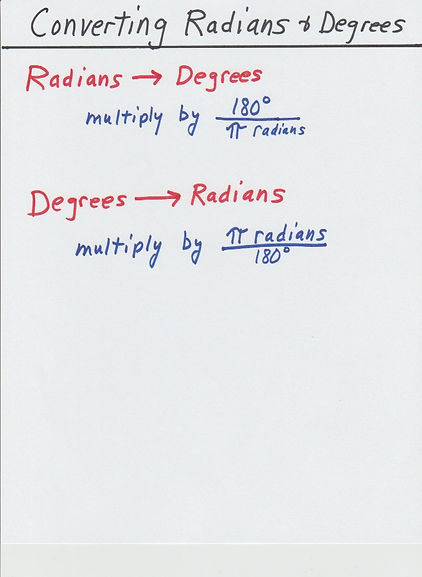 Converting Radians & Degrees
Radians → Degrees
multiply by 180°/π radians
Degrees → Radians
multiply by π radians/180°